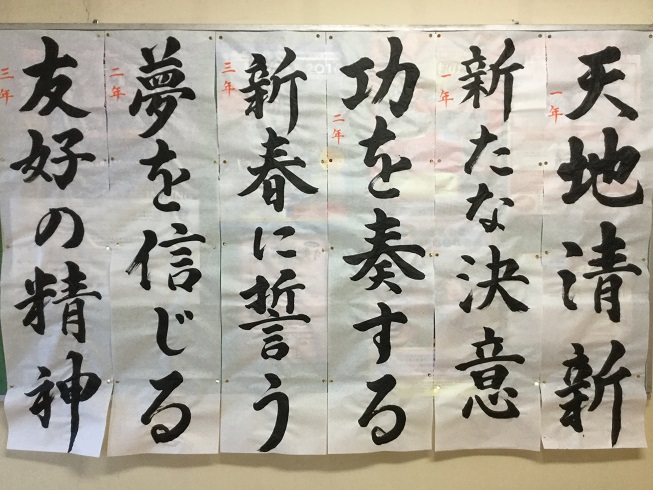 天地清新
一年
新たな決意
一年
功を奏する
二年
新春に誓う
三年
夢を信じる
二年
友好の精神
三年